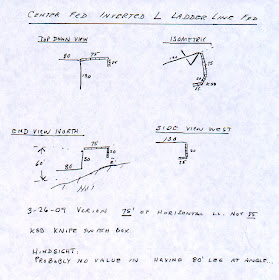 CENTER FED INVERTED L LADDER LINE FED
TOP DOWN VIEW
ISOMETRIC
80
75
130
25
KSB
END VIEW NORTH
SIDE VIEW WEST
75
130
60'
50
20
80
25
3-26-09 VERSION 75' OF HORIZONTAL LL. NOT 55
KSB KNIFE SWITCH BOX
HINDSIGHT:
PROBABLY NO VALUE IN HAVING 80' LEG AT ANGLE..